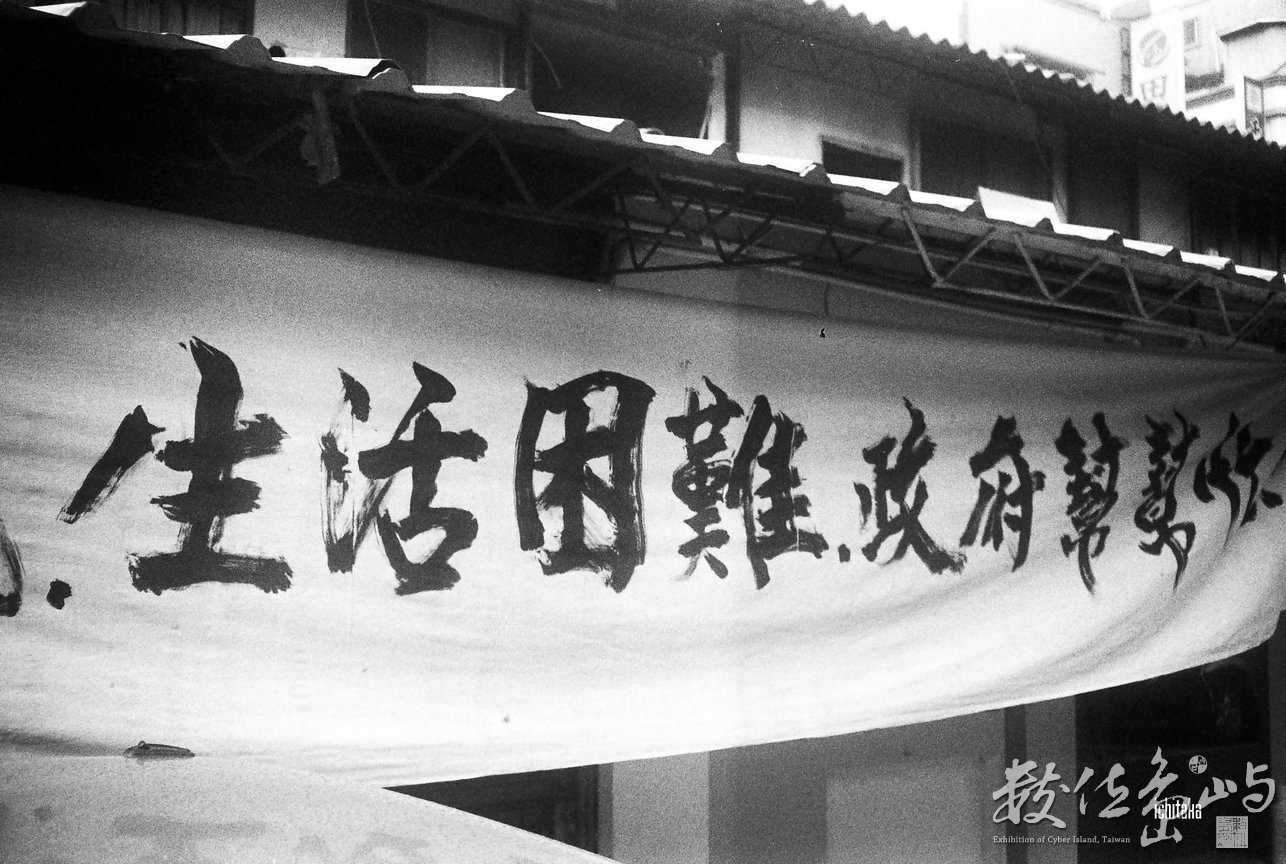 生活困難.政府幫幫忙
田
數位島嶼
ichitaka
Exhibition of Cyber Island, Taiwan